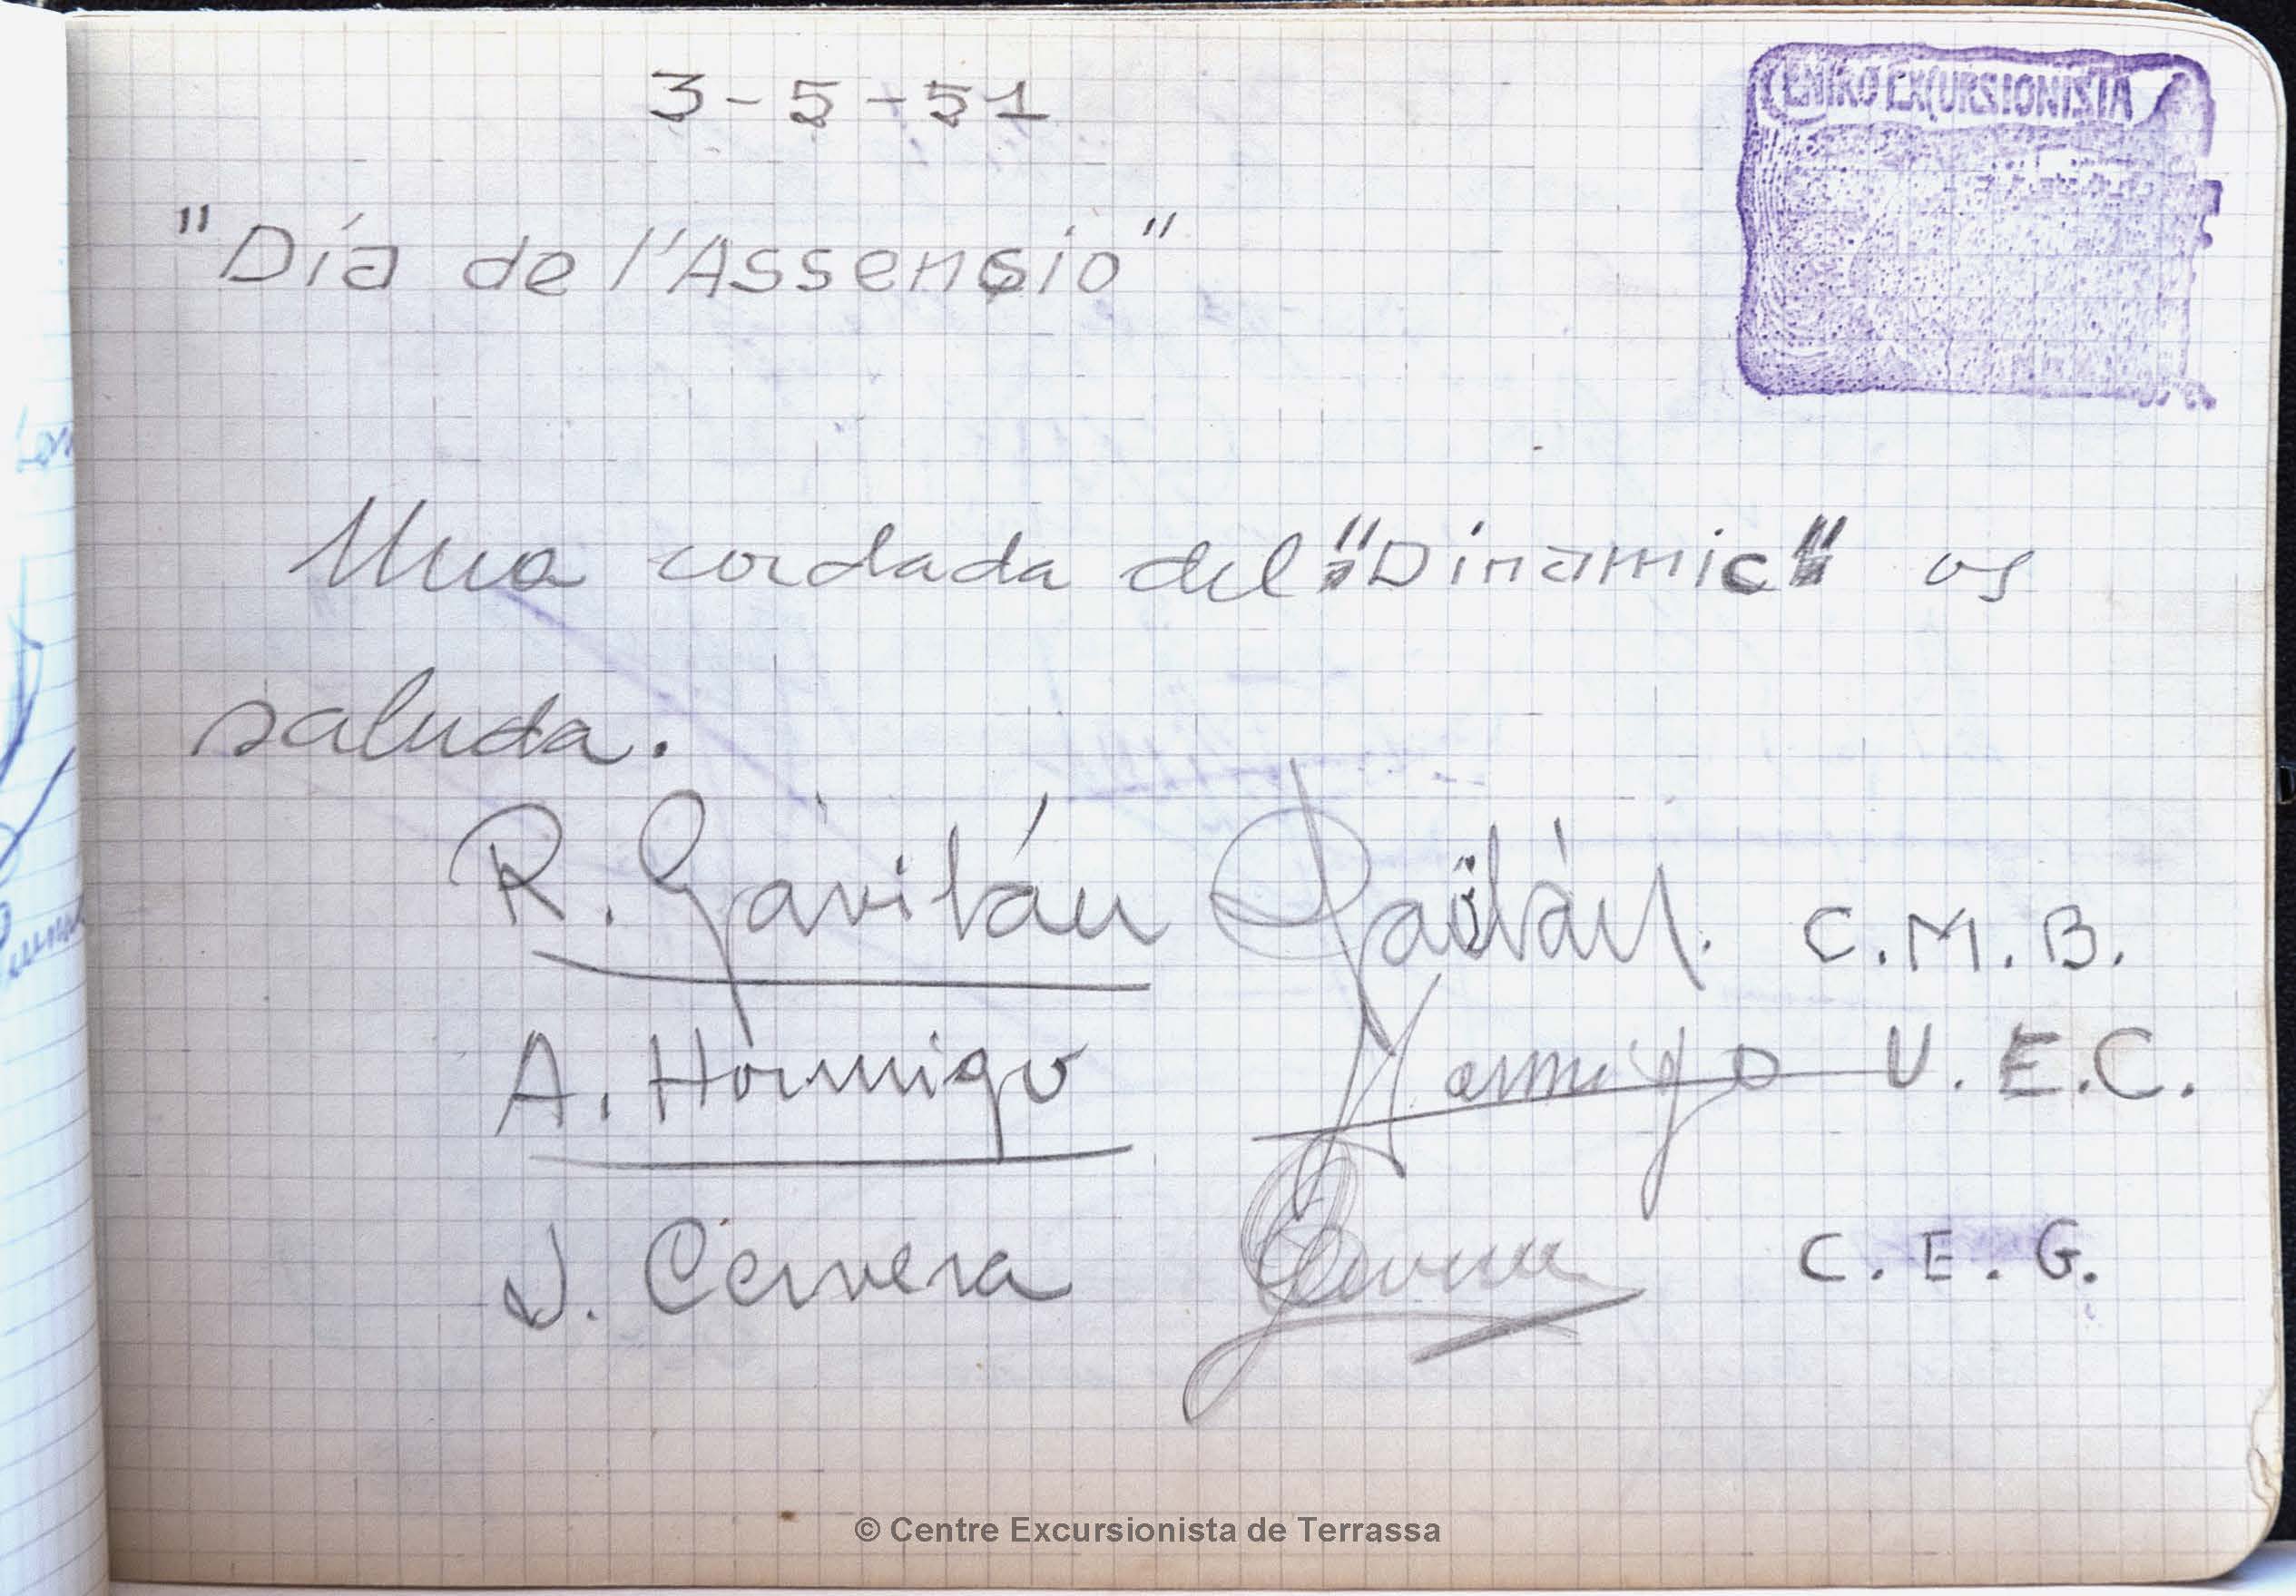 3-5-51
CENTRO EXCURSIONISTA
"Día de l'Assensio"
Una cordada del "Dinamic" os
saluda.
R. Gavilán Gavilán. C.M.B.
A. Hormigo Hormigo U.E.C.
J. Cervera Cervera C.E.G.
© Centre Excursionista de Terrassa